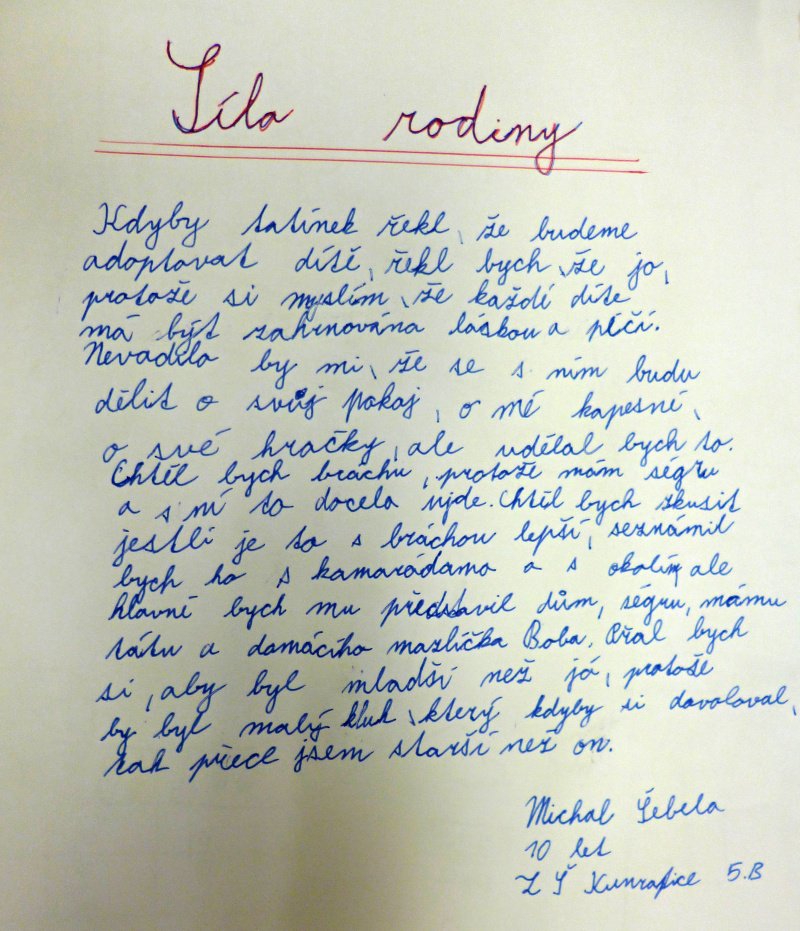 Síla rodiny
Kdyby tatínek řekl, že budeme
adoptovat dítě, řekl bych, že jo,
protože si myslím, že každé díte
má být zahrnována láskou a péčí.
Nevadilo by mi, že se s ním budu
dělit o svůj pokoj, o mé kapesné,
o své hračky, ale udělal bych to.
Chtěl bych bráchu, protože mám ségru
a s ní to docela ujde. Chtěl bych zkusit
jestli je to s bráchou lepší, seznámil
bych ho s kamarádamo a s okolím, ale
hlavně bych mu představil dům, ségru, mámu
tátu a domácího mazlíčka Boba. Přál bych
si, aby byl mladší než já, protože
by byl malý kluk, který kdyby si dovoloval,
tak přece jsem starší než on.
Michal Šebela
10 let
ZŠ Kunratice 5.B